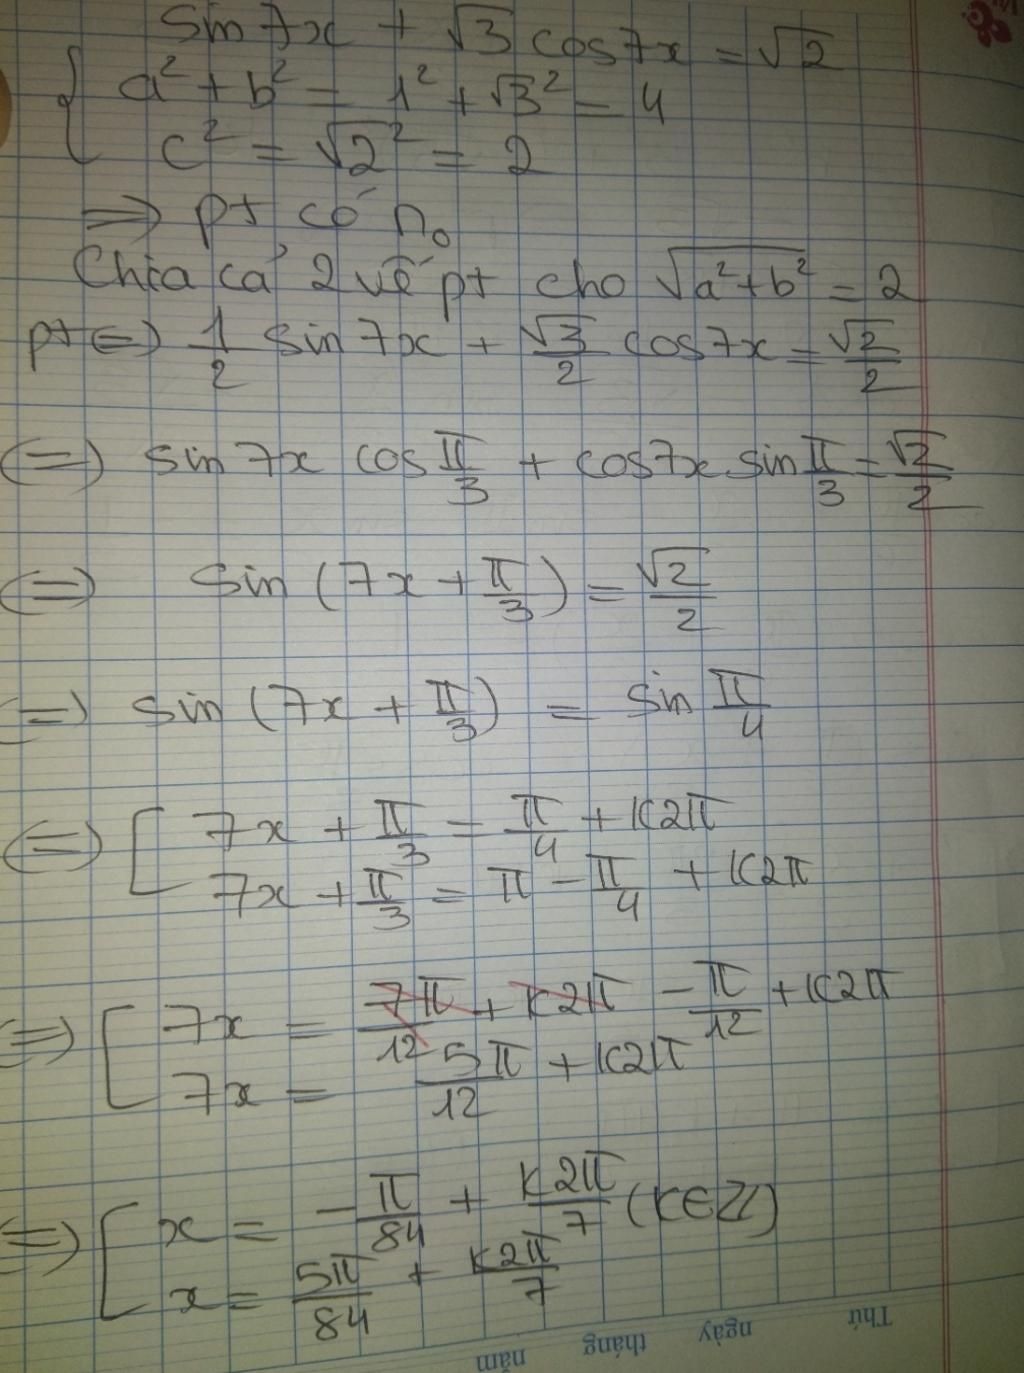 sin7x + √3 cos7x = √2
{ a² + b² = 1² + √3² = 4
c² = √2² = 2
=> pt có n₀
Chia cả 2 vế pt cho √(a²+b²) = 2
pt <=> 1/2 sin7x + √3/2 cos7x = √2/2
<=> sin7x cos π/3 + cos7x sin π/3 = √2/2
<=> sin (7x + π/3) = √2/2
<=> sin (7x + π/3) = sin π/4
<=> [ 7x + π/3 = π/4 + k2π
7x + π/3 = π - π/4 + k2π
<=> [ 7x = 7π/12 + k2π - π/12 + k2π
7x = 5π/12 + k2π
<=> [ x = -π/84 + k2π/7 (k∈Z)
x = 5π/84 + k2π/7
Thứ ngày tháng năm